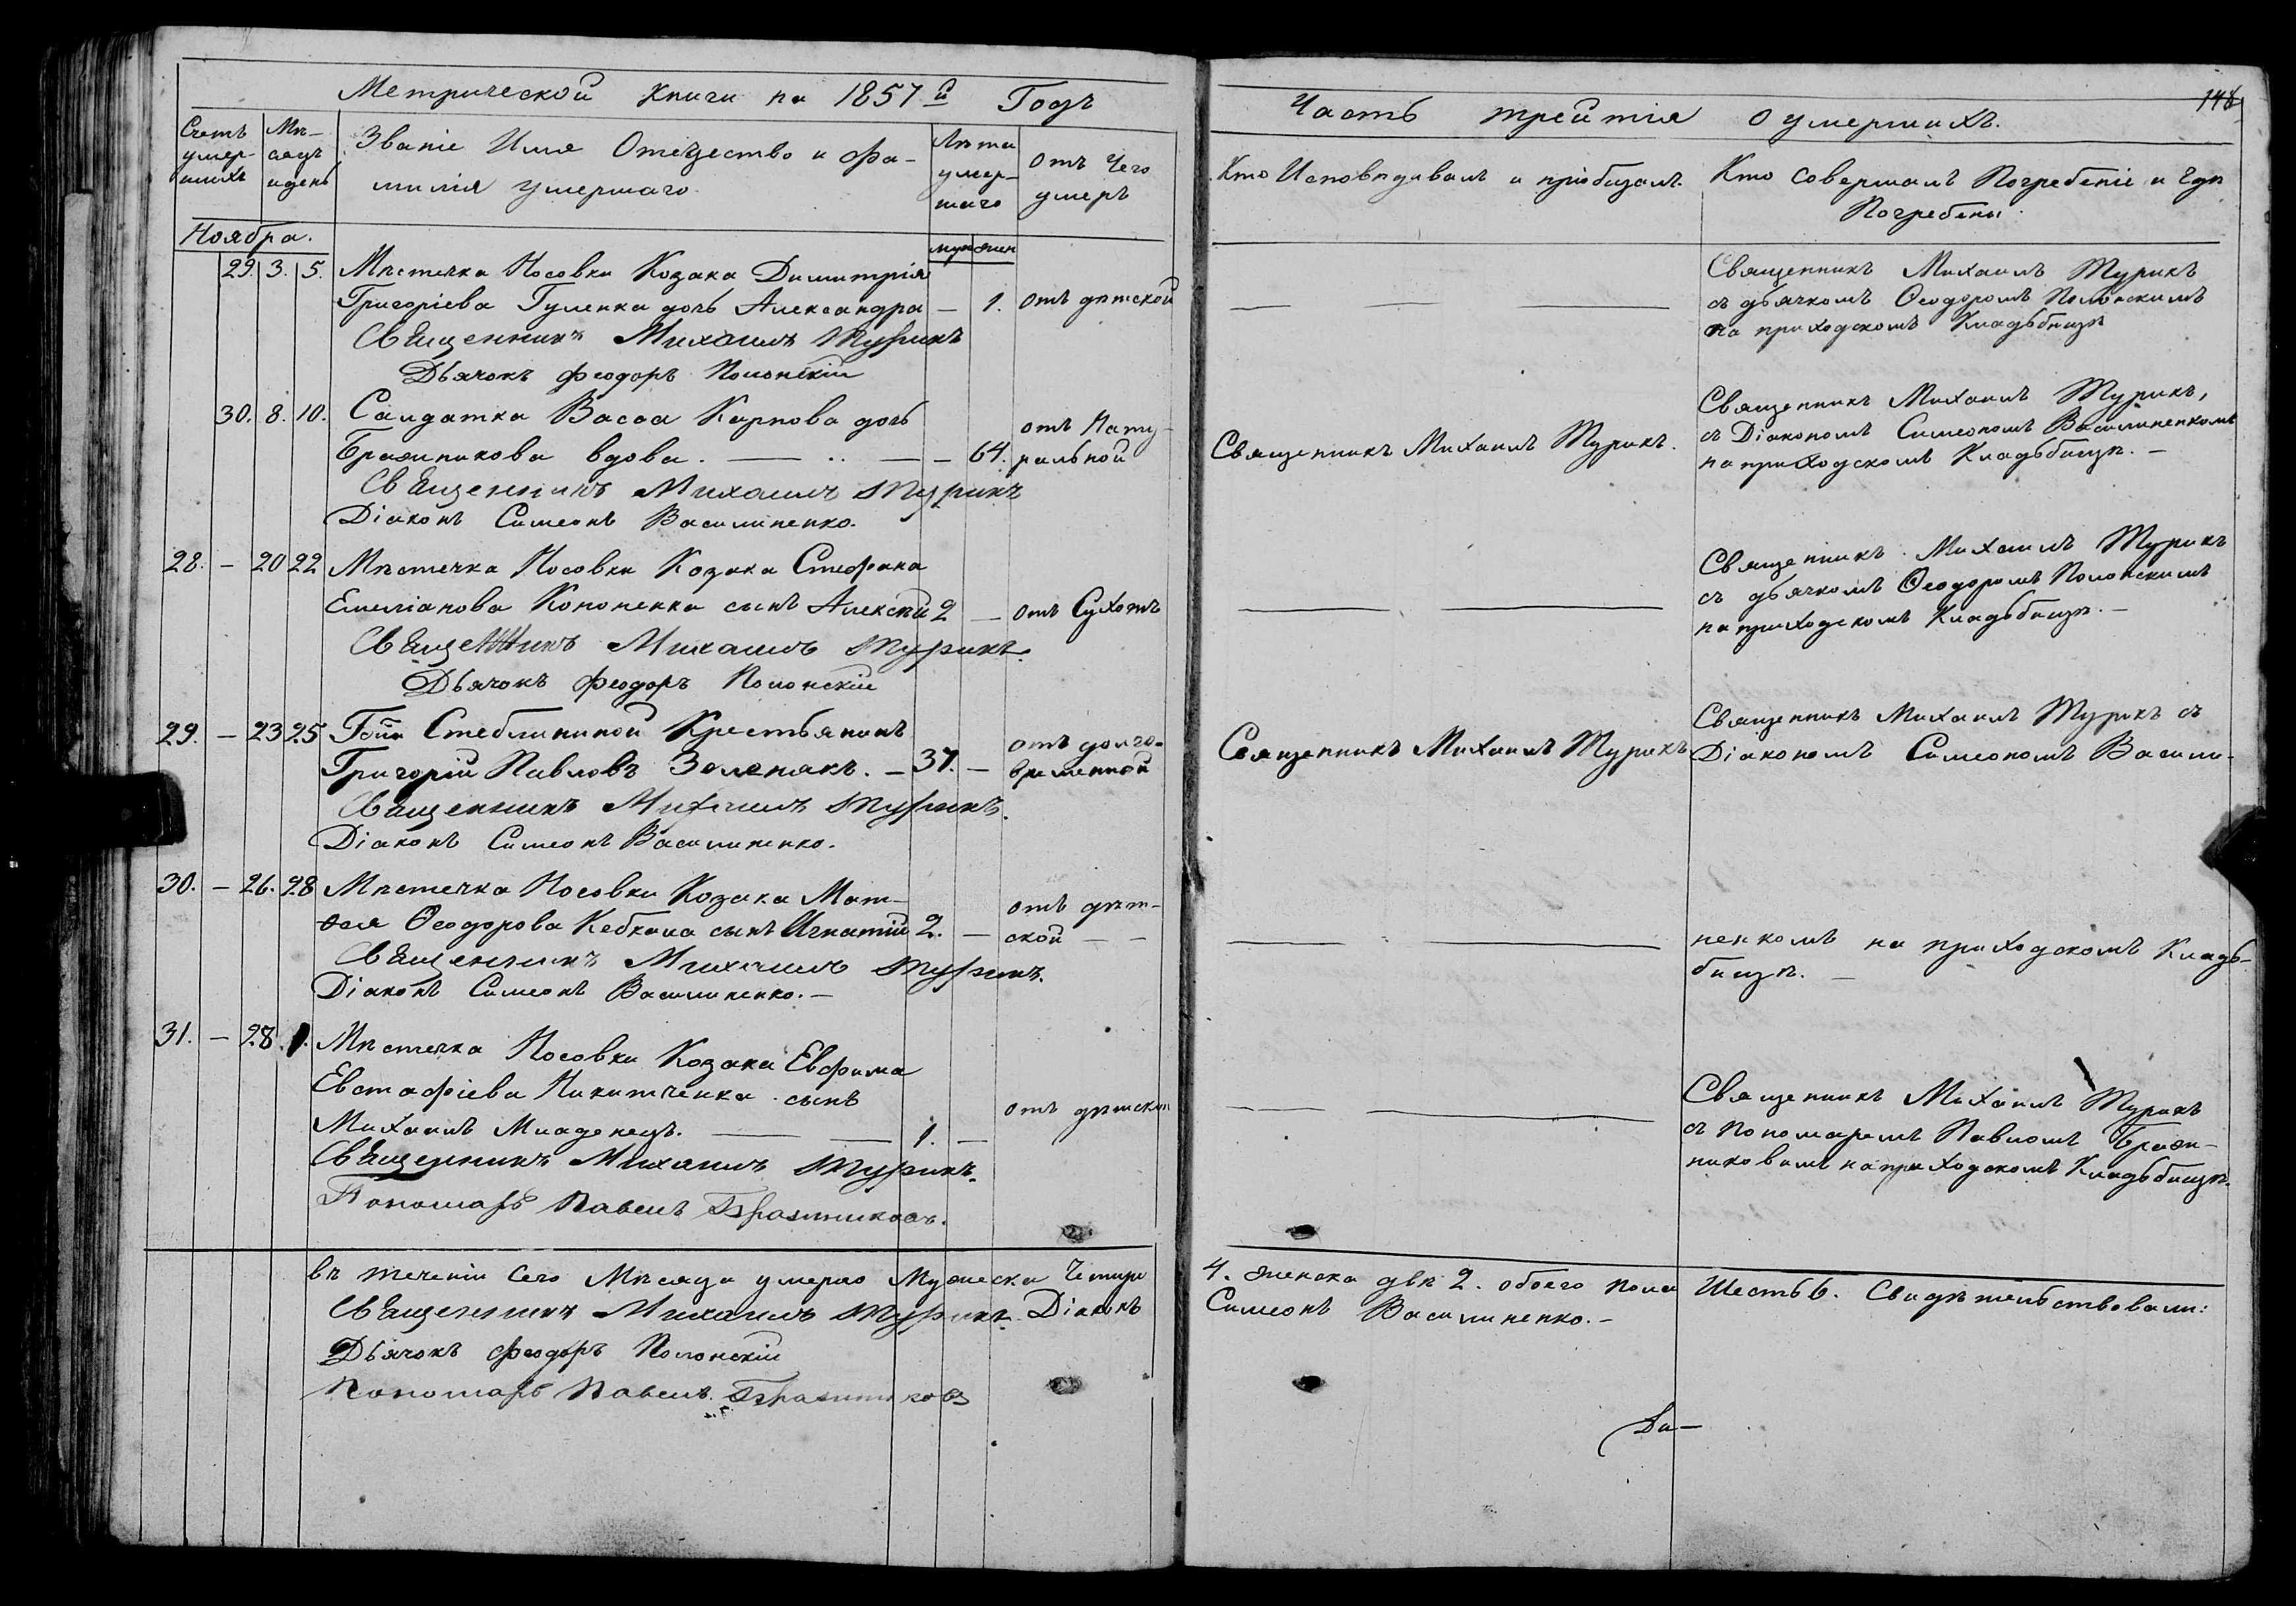 Метрической Книги на 1857й Годъ
Счетъ умер- шихъ
Мѣ- сяцъ и день
Званіе Имя Отечество и Фа-
милія умершаго
Лѣта умер- шаго
отъ Чего умеръ
Ноября.
муж жен
29. 3. 5. Мѣстечка Носовки Козака Димитрія
Григоріева Гуленка дочь Александра — 1. отъ дѣтской
Священникъ Михаилъ Турикъ
Дьячокъ Феодоръ Полонскій
30. 8. 10. Салдатка Васса Карпова дочь
Бражникова вдова. — 64. отъ Нату-
ральной
Священникъ Михаилъ Турикъ
Діаконъ Симеонъ Василиненко.
28. — 20 22 Мѣстечка Носовки Козака Стефана
Емеліанова Кононенка сынъ Алексѣй 2 — отъ Сухотъ
Священникъ Михаилъ Турикъ.
Дьячокъ Феодоръ Полонскій
29. — 23 25 Гспжи Стеблининой Крестьянинъ
Григорій Павловъ Зеленякъ. — 37. — отъ долго-
временной
Священникъ Михаилъ Турикъ.
Діаконъ Симеонъ Василиненко.
30. — 26. 28 Мѣстечка Носовки Козака Мат-
ѳея Ѳеодорова Кебкала сынъ Игнатій 2. — отъ дѣт-
ской — —
Священникъ Михаилъ Турикъ.
Діаконъ Симеонъ Василиненко. —
31. — 28. 1. Мѣстечка Носовки Козака Евфима
Евстафіева Никитченка сынъ
Михаилъ Младенецъ. — 1. — отъ дѣтской
Священникъ Михаилъ Турикъ.
Пономарь Павелъ Бражниковъ.
въ теченіи Сего Мѣсяца умерло Мужеска Четыре
Священникъ Михаилъ Турикъ. Діаконъ
Дьячокъ Феодоръ Полонскій
Пономарь Павелъ Бражниковъ
Часть трейтія о умершихъ.
148
Кто Исповѣдывалъ и пріобщалъ.
Кто Совершалъ Погребеніе и Гдѣ
Погребены.
Священникъ Михаилъ Турикъ
съ дьячкомъ Ѳеодоромъ Полонскимъ
на приходскомъ Кладьбищѣ
Священникъ Михаилъ Турикъ.
Священникъ Михаилъ Турикъ,
съ Діакономъ Симеономъ Василиненкомъ
на приходскомъ Кладьбищѣ. —
Священникъ Михаилъ Турикъ
съ дьячкомъ Ѳеодоромъ Полонскимъ
на приходскомъ Кладьбищѣ. —
Священникъ Михаилъ Турикъ
Священникъ Михаилъ Турикъ съ
Діакономъ Симеономъ Васили-
ненкомъ на приходскомъ Кладь-
бищѣ. —
Священникъ Михаилъ Турикъ
съ пономаремъ Павломъ Браж-
никовымъ на приходскомъ Кладьбищѣ.
4. женска двѣ 2. обоего пола Шесть 6. Свидѣтельствовали:
Симеонъ Василиненко. —